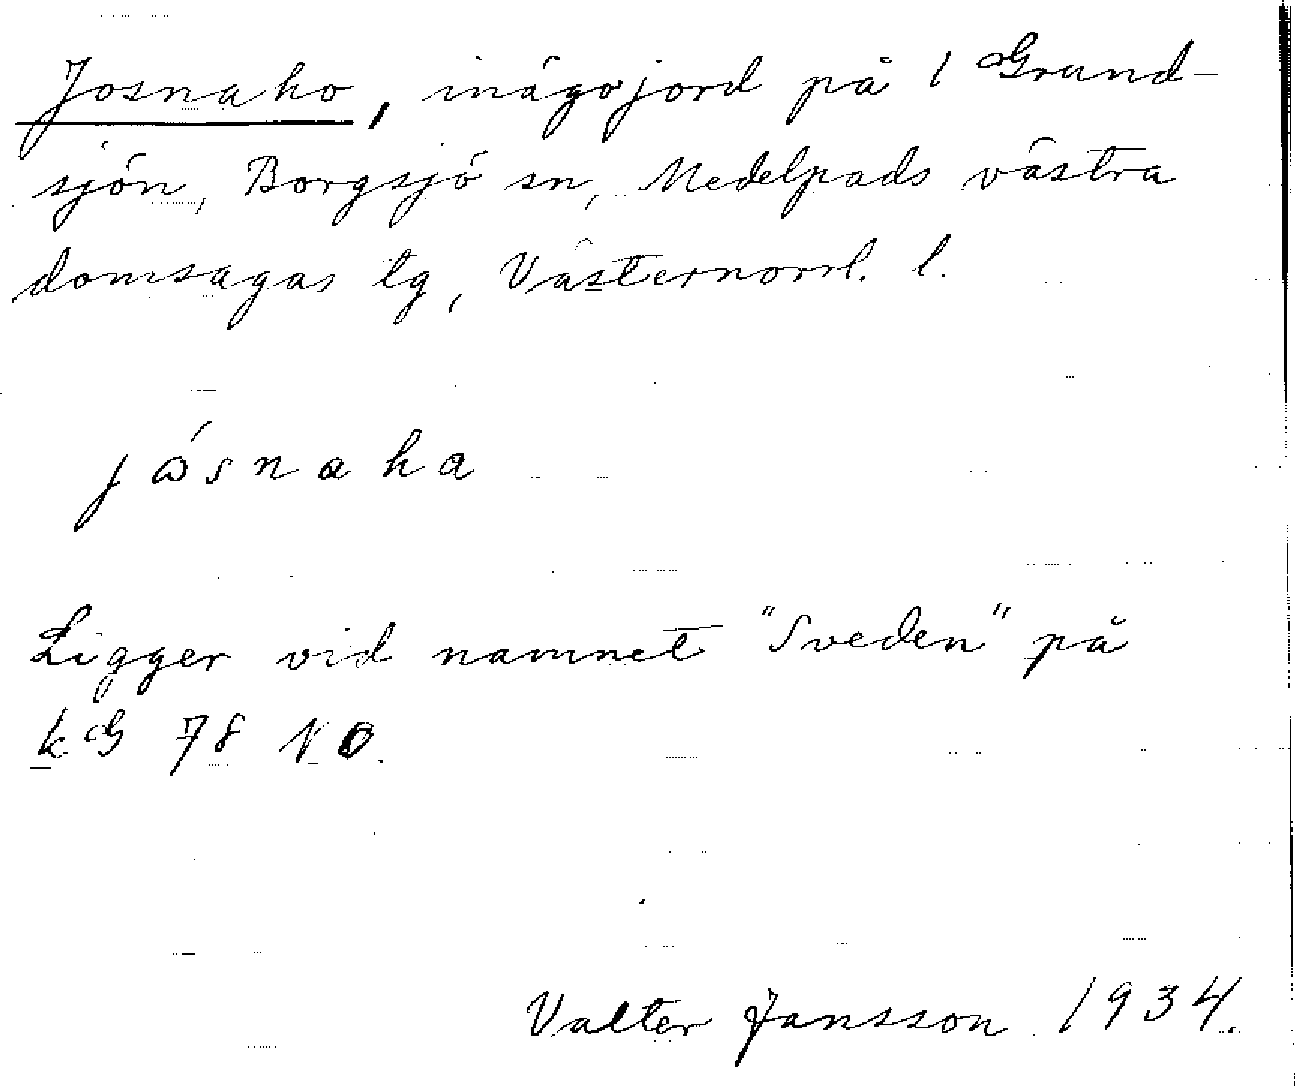 Josnaho, inägojord på 1 Grund-
sjön, Borgsjö sn, Medelpads västra
domsagas tg, Västernorrl. l.
jǻsnaha
Ligger vid namnet "Sveden" på
kG 78 NO.
Valter Jansson 1934.